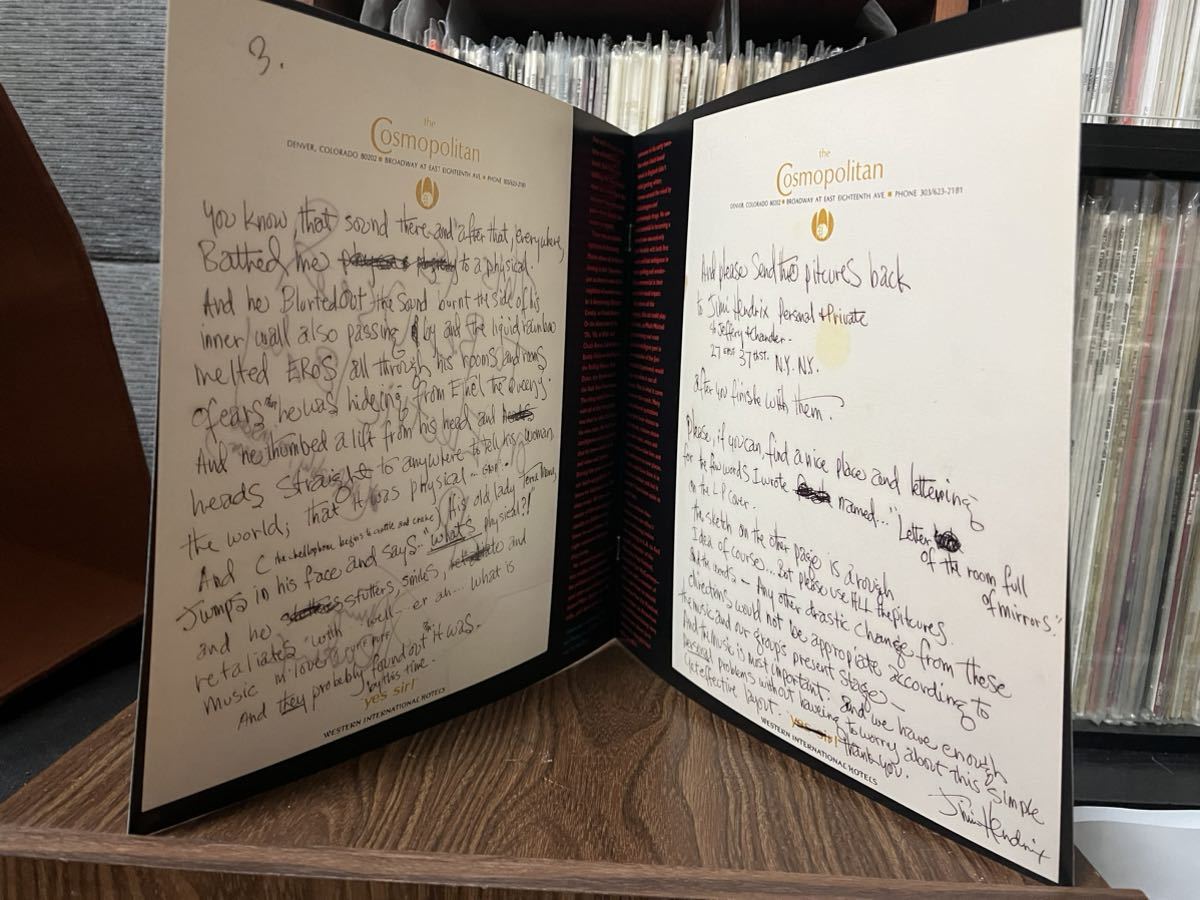 3.
the
Cosmopolitan
DENVER, COLORADO 80202 • BROADWAY AT EAST EIGHTEENTH AVE. • PHONE 303/623-2181
you know, that sound there and "after that, everywhere,
Bathed me to a physical.
And he Blurted out the sound burnt the side of his
inner wall also passing by and the liquid rainbow
melted EROS all through his rooms and rooms
of ears he was hideing from Ethel the Queeny.
And he thumbed a lift from his head and heads
heads straight to anywhere to tell his woman,
the world; that it was physical
And (the chellophone begins to rattle and craine) His old lady
Jumps in his face and says.. "whats physical?!"
and he stutters, smiles, and
retaliates "with well... er ah... what is
music m' love
And they probably found out it was.
by this time.
yes sir!
WESTERN INTERNATIONAL HOTELS
the
Cosmopolitan
DENVER, COLORADO 80202 • BROADWAY AT EAST EIGHTEENTH AVE. • PHONE 303/623-2181
And please send the pitcures back
to Jimi Hendrix Personal + Private
c/o Jeffery + Chandler.
27 EAST 37th ST. N.Y. N.Y.
after you finish with them.
Please, if you can, find a nice place and lettering
for the few words I wrote named... "Letter
of the room full
of mirrors."
on the L-P cover.
the sketh on the other page is a rough
Idea of course... But please use ALL the pitcures
and the words — Any other drastic change from these
directions would not be appropiate according to
the music and our group's present stage —
And the music is most important. And we have enough
personal problems without haveing to worry about this simple
yet effective layout.
thank you.
yes sir!
WESTERN INTERNATIONAL HOTELS
Jimi Hendrix